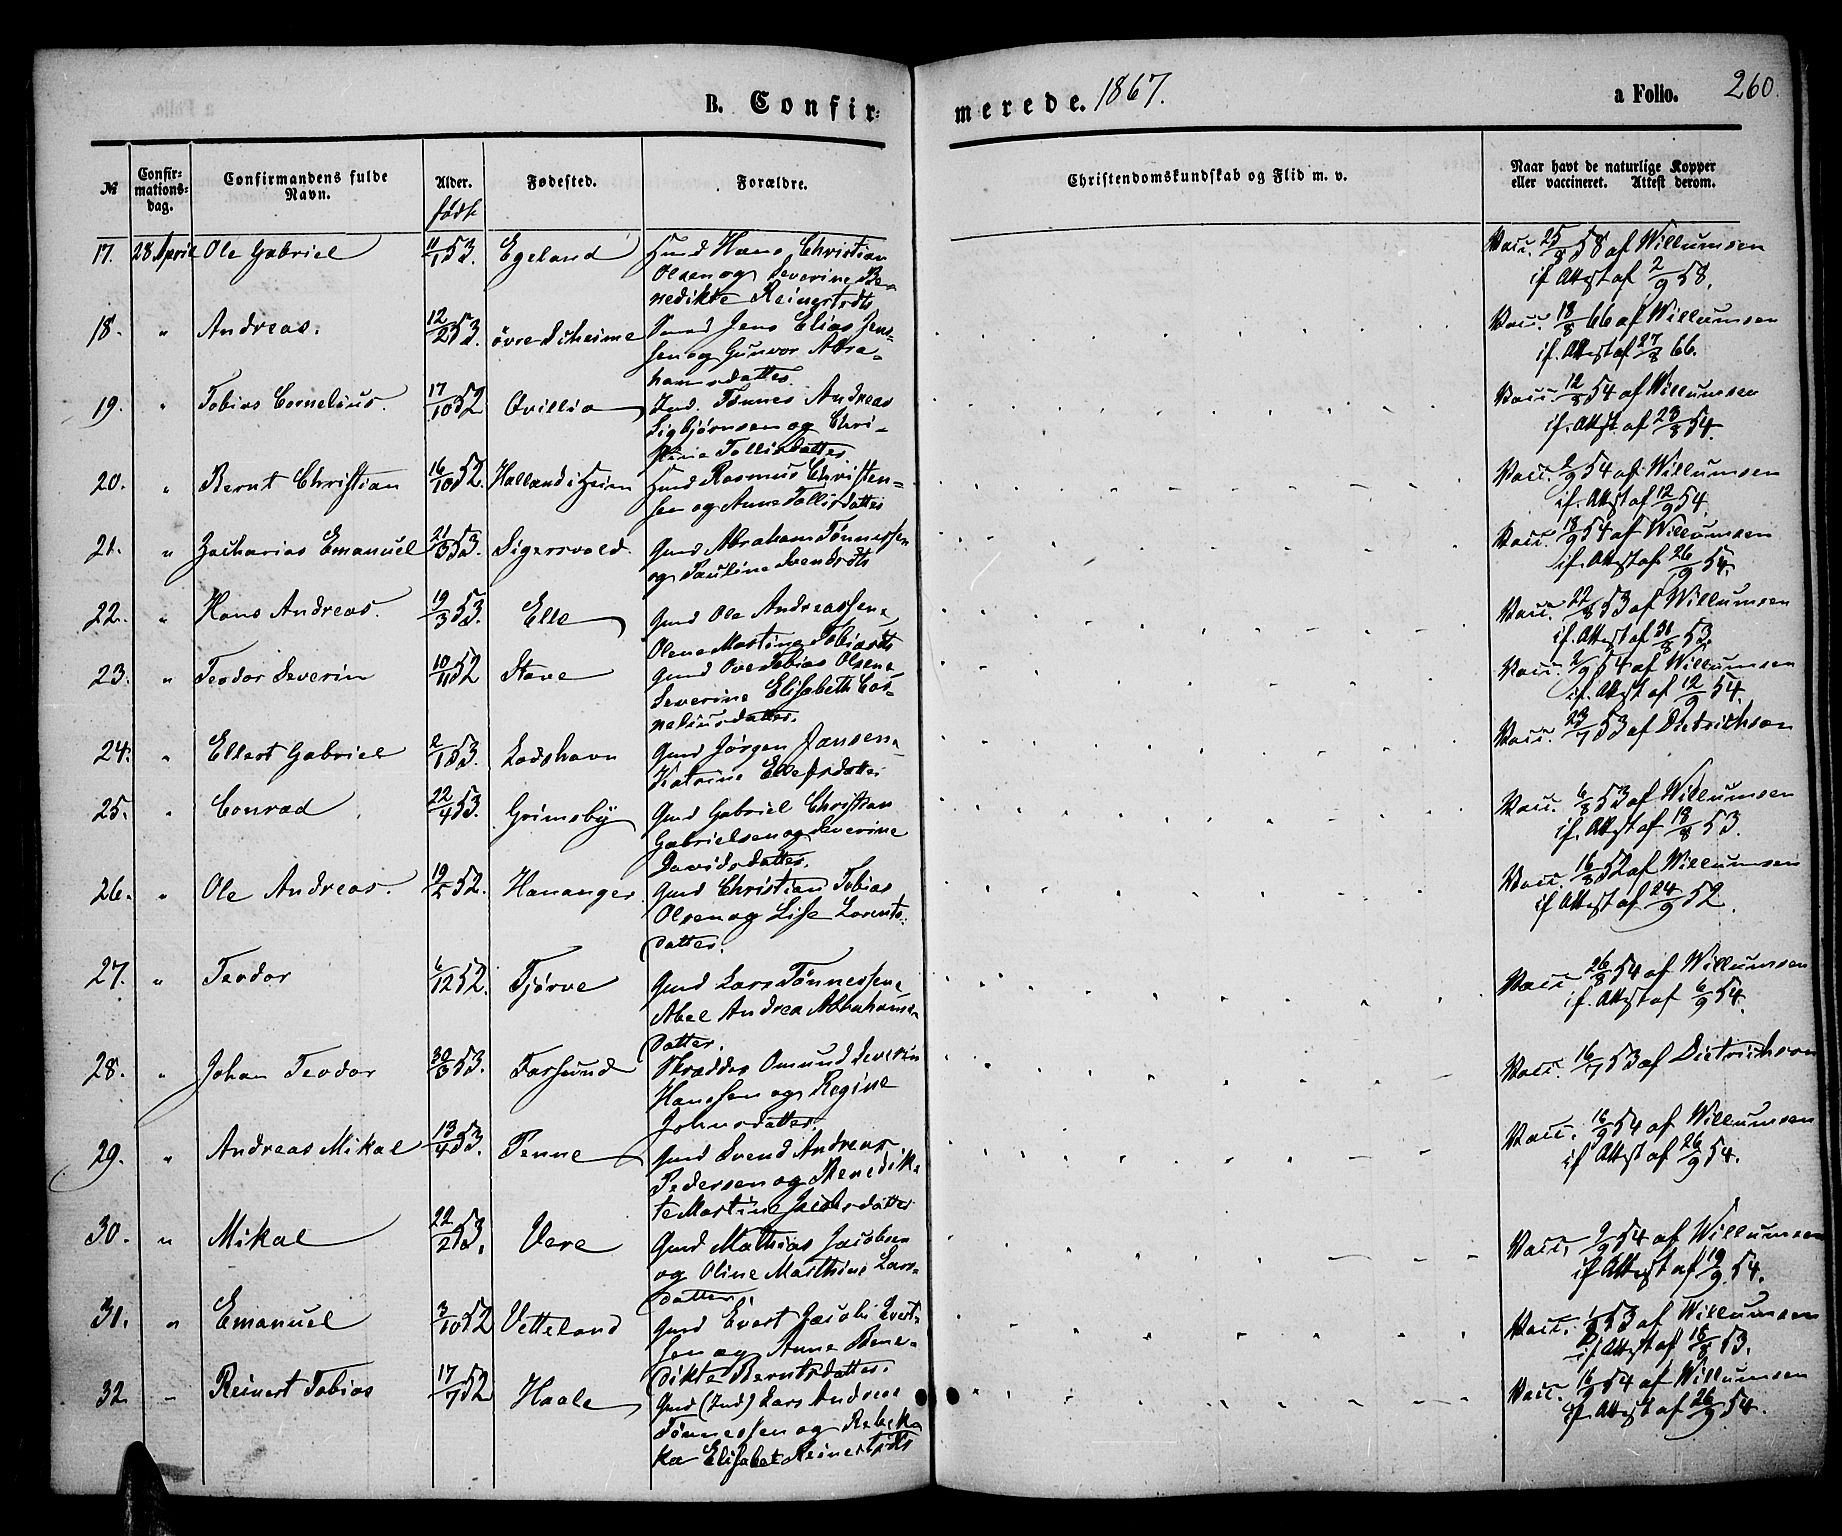 B. Confir-
merede. 1867.
a Folio. 260.
№
Confir-
mations-
dag.
Confirmandens fulde
Navn.
Alder.
født
Fødested.
Forældre.
Christendomskundskab og Flid m. v.
Naar havt de naturlige Kopper
eller vaccineret. Attest derom.
17. 28 April Ole Gabriel 11/1 53. Egeland
Hans Christian
Olsen og Severine Be-
nedikte Reinertsdtr
Vacc. 25/8 58 af Willumsen
if. Attest af 2/9 58.
18. " Andreas. 12/2 53. øvre
Jens Elias Jen-
sen og Gunvor Abra-
hamsdatter.
Vacc. 18/8 66 af Willumsen
if. Attest af 27/8 66.
19. " Tobias Cornelius. 17/10 52 Ovillia
Ind. Tønnes Andreas
Sigbjørnsen og Chri-
stine Tollisdatter
Vacc. 12/8 54 af Willumsen
if. Attst. af 23/8 54.
20. " Bernt Christian 16/10 52. Halland i Heien
Rasmus Christen-
sen og Anne Tollisdatter
Vacc. 2/9 54 af Willumsen
if. Attst af 12/9 54.
21. " Zacharias Emanuel 21/3 53. Sigersvold.
Gmd Abraham Tønnessen
og Pauline Svendsdtr
Vacc. 18/9 54 af Willumsen
if. Attst af 26/9 54.
22. " Hans Andreas. 19/3 53. Elle
Gmd Ole Andreassen
Olene Martine Tobiasdtr
Vacc. 22/8 53 af Willumsen
if. Attest af 31/8 53.
23. " Teodor Severin 10/11 52 Stave
Gmd Ove Tobias Olsen
Severine Elisabeth Cor-
neliusdatter.
Vacc. 2/9 54 af Willumsen
if. Attst af 12/9 54.
24. " Ellert Gabriel 2/1 53. Lodshavn
Gmd Jørgen Jansen
Katrine Ellefsdatter
Vacc. 23/7 53 af Dietrichson
25. " Conrad 22/4 53. Grimsby
Gmd Gabriel Christian
Gabrielsen og Severine
Davidsdatter.
Vacc. 6/8 53 af Willumsen
if. Attst af 18/8 53.
26. " Ole Andreas. 19/5 52. Hananger
Gmd Christian Tobias
Olsen og Lise Lorents-
datter.
Vacc. 16/8 52 af Willumsen
if Attest af 24/9 52.
27. " Teodor 6/12 52. Tjørve
Gmd Lars Tønnessen
Abel Andrea Abrahams-
datter.
Vacc 26/8 54 af Willumsen
if. Attest af 6/9 54.
28. " Johan Teodor 30/3 53. Farsund
Skrædder Omund Severin
Hanssen og Regine
Johnsdatter.
Vacc. 16/7 53 af Dietrichson
29. " Andreas Mikal 13/4 53. Penne
Gmd Svend Andreas
Pedersen og Benedik-
te Martine Jacobsdatter
Vacc. 16/9 54 af Willumsen
if Attest af 26/9 54.
30. " Mikal 22/2 53. Vere
Gmd Mathias Jacobsen
og Oline Marthine Lars-
datter
Vacc. 9/9 54 af Willumsen
if Attest af 19/9 54.
31. " Emanuel 3/10 52 Vetteland
Gmd Evert Jacob Evert-
sen og Anne Bene-
dikte Berntsdatter.
Vacc. 53 af Willumsen
if Attst af 18/8 53.
32 " Reinert Tobias 17/7 52 Haale
Gmd (Ind) Lars Andreas
Tønnessen og Rebek-
ka Elisabet Reinertsdtr
Vacc. 16/9 54 af Willumsen
if Attest af 26/9 54.